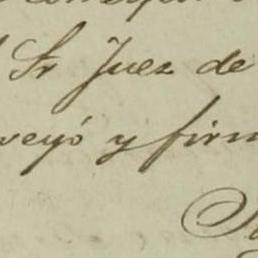 Sr Juez de
veyó y firm